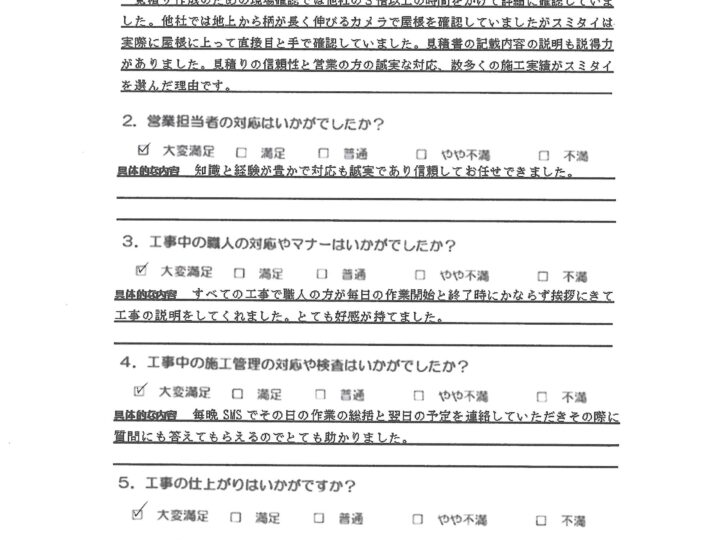 見積り作成のための現場確認では他社の3倍以上の時間をかけて詳細に確認していま
した。他社では地上から柄が長く伸びるカメラで屋根を確認していましたがスミタイは
実際に屋根に上って直接目と手で確認していました。見積書の記載内容の説明も説得力
がありました。見積りの信頼性と営業の方の誠実な対応、数多くの施工実績がスミタイ
を選んだ理由です。
2．営業担当者の対応はいかがでしたか？
☑ 大変満足 □ 満足 □ 普通 □ やや不満 □ 不満
具体的な内容 知識と経験が豊かで対応も誠実であり信頼してお任せできました。
3．工事中の職人の対応やマナーはいかがでしたか？
☑ 大変満足 □ 満足 □ 普通 □ やや不満 □ 不満
具体的な内容 すべての工事で職人の方が毎日の作業開始と終了時にかならず挨拶にきて
工事の説明をしてくれました。とても好感が持てました。
4．工事中の施工管理の対応や検査はいかがでしたか？
☑ 大変満足 □ 満足 □ 普通 □ やや不満 □ 不満
具体的な内容 毎晩SMSでその日の作業の総括と翌日の予定を連絡していただきその際に
質問にも答えてもらえるのでとても助かりました。
5．工事の仕上がりはいかがですか？
☑ 大変満足 □ 満足 □ 普通 □ やや不満 □ 不満